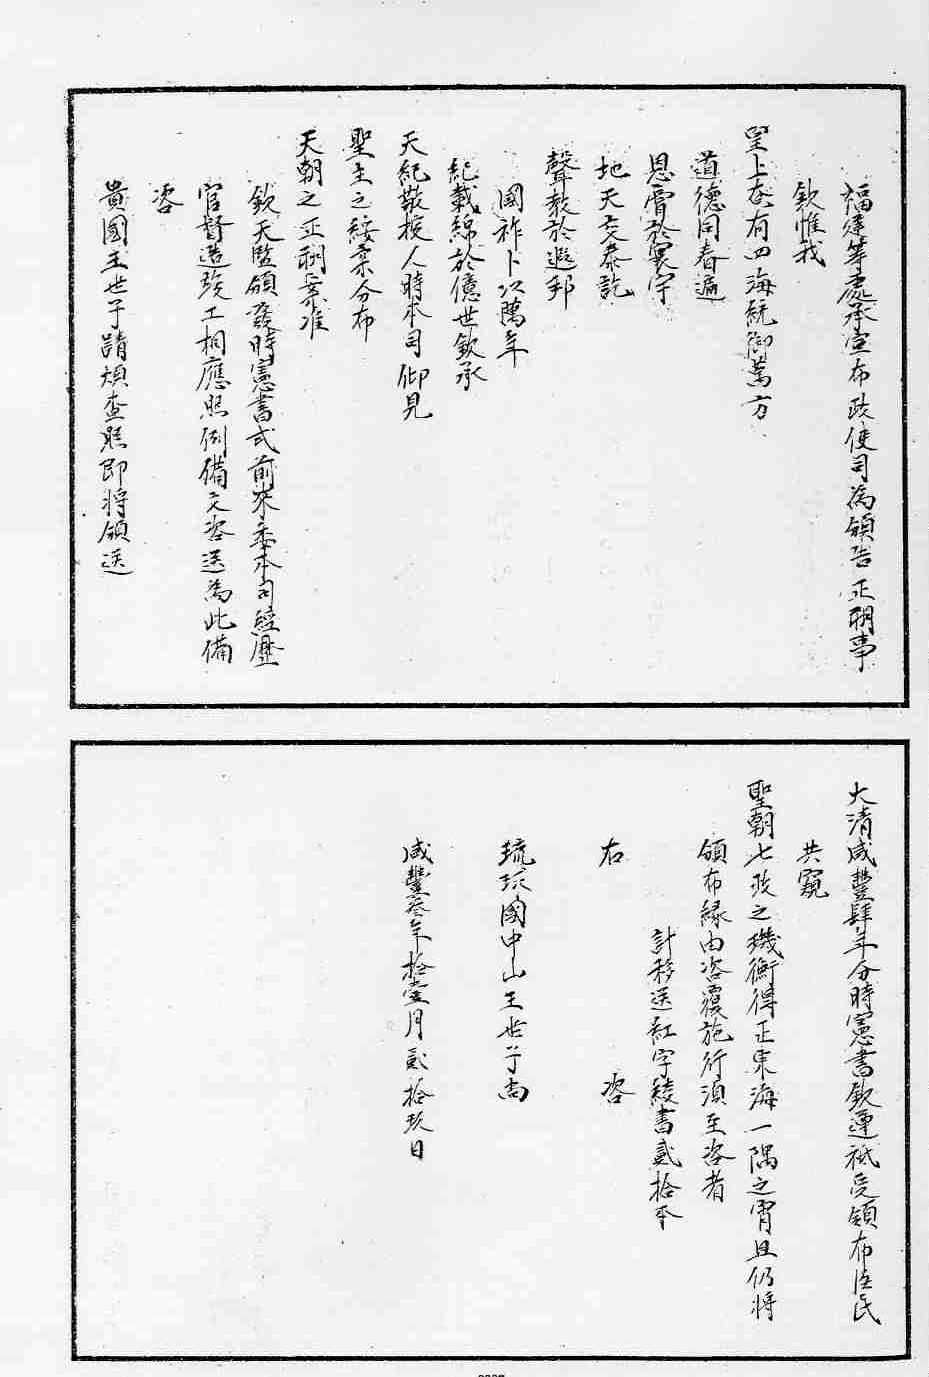 福建等處承宣布政使司為頒告正朔事
欽惟我
皇上奄有四海統御萬方
道德同春遍
恩霄於寰宇
地天交泰訖
聲教於遐邦
國祚卜以萬年
紀載綿於億世欽承
天紀敬授人時本司仰見
聖主之綏柔分布
天朝之正朔案准
欽天監頒發時憲書式前來委本司經歷
官督造竣工相應照例備文咨送為此備
咨
貴國王世子請煩查照即將領送
大清咸豐肆年分時憲書欽遵祗受頒布臣民
共窺
聖朝七政之璣衡得正東海一隅之霄且仍將
頒布緣由咨覆施行須至咨者
計移送紅字綾書貳拾本
右咨
琉球國中山王世子尚
咸豐叁年拾壹月貳拾玖日